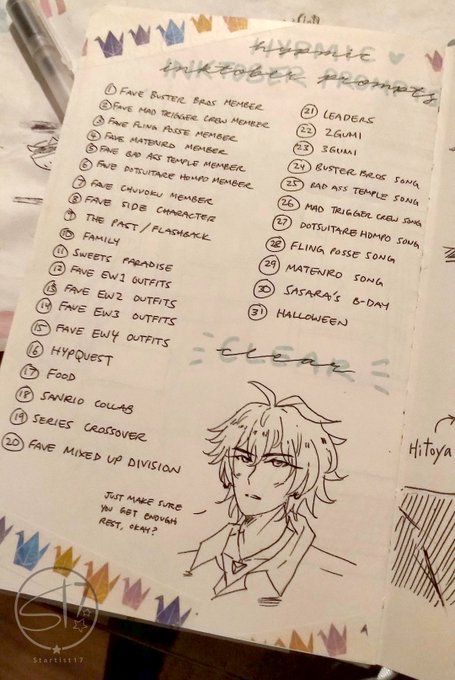 HYPMIC
INKTOBER PROMPTS
1 FAVE BUSTER BROS MEMBER
2 FAVE MAD TRIGGER CREW MEMBER
3 FAVE FLING POSSE MEMBER
4 FAVE MATENRO MEMBER
5 FAVE BAD ASS TEMPLE MEMBER
6 FAVE DOTSUITARE HOMPO MEMBER
7 FAVE CHUVOKU MEMBER
8 FAVE SIDE CHARACTER
9 THE PAST/FLASHBACK
10 FAMILY
11 SWEETS PARADISE
12 FAVE EW1 OUTFITS
13 FAVE EW2 OUTFITS
14 FAVE EW3 OUTFITS
15 FAVE EW4 OUTFITS
16 HYPQUEST
17 FOOD
18 SANRIO COLLAB
19 SERIES CROSSOVER
20 FAVE MIXED UP DIVISION
21 LEADERS
22 2GUMI
23 3GUMI
24 BUSTER BROS SONG
25 BAD ASS TEMPLE SONG
26 MAD TRIGGER CREW SONG
27 DOTSUITARE HOMPO SONG
28 FLING POSSE SONG
29 MATENRO SONG
30 SASARA'S B-DAY
31 HALLOWEEN
CLEAR
JUST MAKE SURE
YOU GET ENOUGH
REST, OKAY?
Hitoya
ST17
Startist17